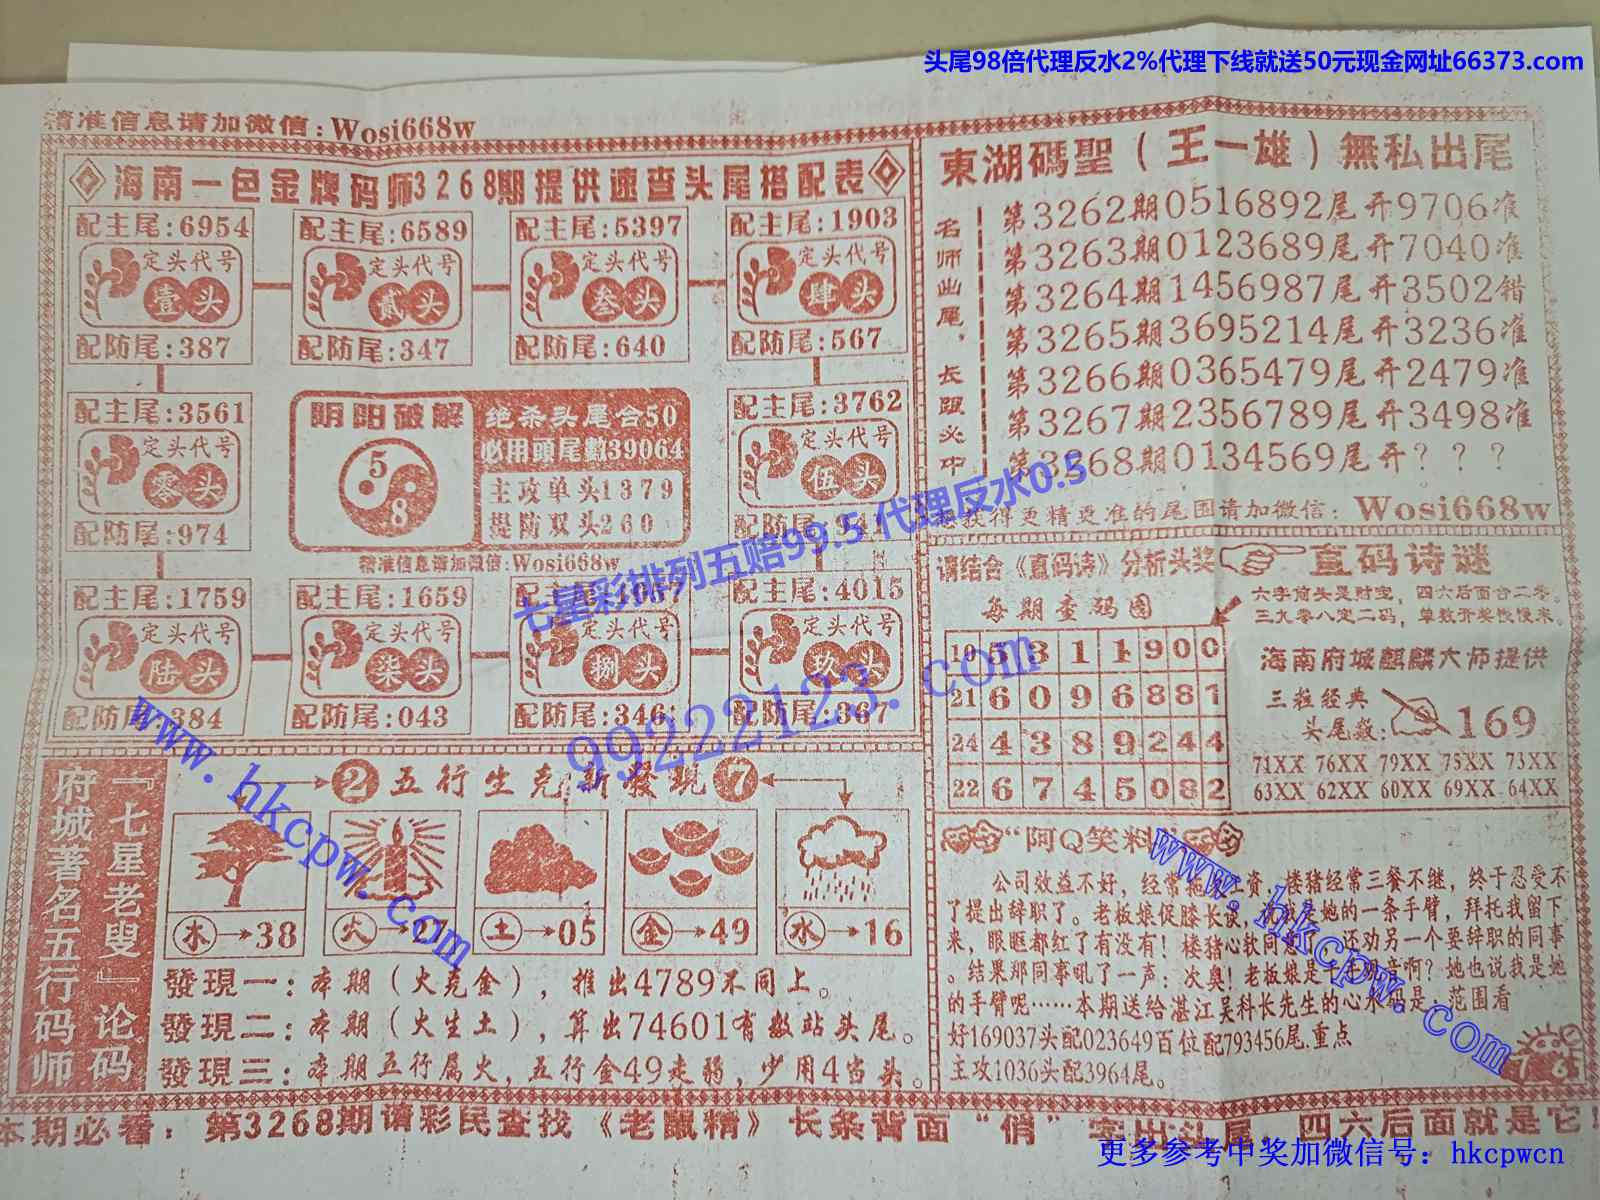 头尾98倍代理反水2%代理下线就送50元现金网址66373.com
精准信息请加微信：Wosi668w
海南一色金牌码师3268期提供速查头尾搭配表
配主尾:6954
定头代号
壹头
配防尾:387
配主尾:6589
定头代号
贰头
配防尾:347
配主尾:5397
定头代号
叁头
配防尾:640
配主尾:1903
定头代号
肆头
配防尾:567
配主尾:3561
定头代号
零头
配防尾:974
阴阳破解
5
8
绝杀头尾合50
必用頭尾數39064
主攻单头1379
提防双头260
精准信息请加微信:Wosi668w
配主尾:3762
定头代号
伍头
配防尾
配主尾:1759
定头代号
陆头
配防尾:384
配主尾:1659
定头代号
柒头
配防尾:043
配主尾
定头代号
捌头
配防尾:346
配主尾:4015
定头代号
玖头
配防尾:367
東湖碼聖（王一雄）無私出尾
名师出尾，长跟必中
第3262期0516892尾开9706准
第3263期0123689尾开7040准
第3264期1456987尾开3502错
第3265期3695214尾开3236准
第3266期0365479尾开2479准
第3267期2356789尾开3498准
第3268期0134569尾开？？？
想获得更精更准的尾围请加微信：Wosi668w
请结合《直码诗》分析头奖
直码诗谜
每期查码图
六字前头是财宝，四六后面合二零。
三九零八定二码，单数开奖慢慢来。
19 5 3 1 1 9 0 0
21 6 0 9 6 8 8 1
24 4 3 8 9 2 4 4
22 6 7 4 5 0 8 2
海南府城麒麟大师提供
三粒经典
头尾数: 169
71XX 76XX 79XX 75XX 73XX
63XX 62XX 60XX 69XX 64XX
七星彩排列五赔99.5 代理反水0.5
99222123.com
府城著名五行码师
『七星老叟』论码
2 五行生克新發現 7
木→38
火→27
土→05
金→49
水→16
發現一：本期（火克金），推出4789不同上。
發現二：本期（火生土），算出74601有数站头尾。
發現三：本期五行属火，五行金49走弱，少用4宫头。
“阿Q笑料”
公司效益不好，经常拖欠工资，楼猪经常三餐不继，终于忍受不
了提出辞职了。老板娘促膝长谈，说我是她的一条手臂，拜托我留下
来，眼眶都红了有没有！楼猪心软同意了，还劝另一个要辞职的同事
。结果那同事吼了一声：次奥！老板娘是千手观音啊？她也说我是她
的手臂呢……本期送给湛江吴科长先生的心水码是：范围看
好169037头配023649百位配793456尾.重点
主攻1036头配3964尾。
www.hkcpw.cn.com
www.hkcpw.cn.com
本期必看：第3268期请彩民查找《老鼠精》长条背面“俏”字出头尾，四六后面就是它！
更多参考中奖加微信号：hkcpwcn